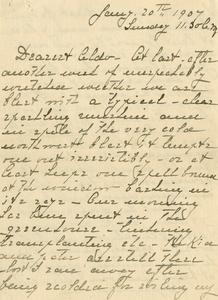 Jany. 20th 1907
Sunday 11.30 A.M.
Dearest Aldo - At last, after
another week of unexpectedly
weather we are
blest with a typical - clear
sparkling sunshine and
in spite of the very cold
northwest blast it tempts
one out irresistibly, - or at
least keeps one spell bound
at the window basking in
its rays - Our morning
has been spent in the
greenhouse -
transplanting etc - 
and are still there
but I ran away after
being scolded for soiling my